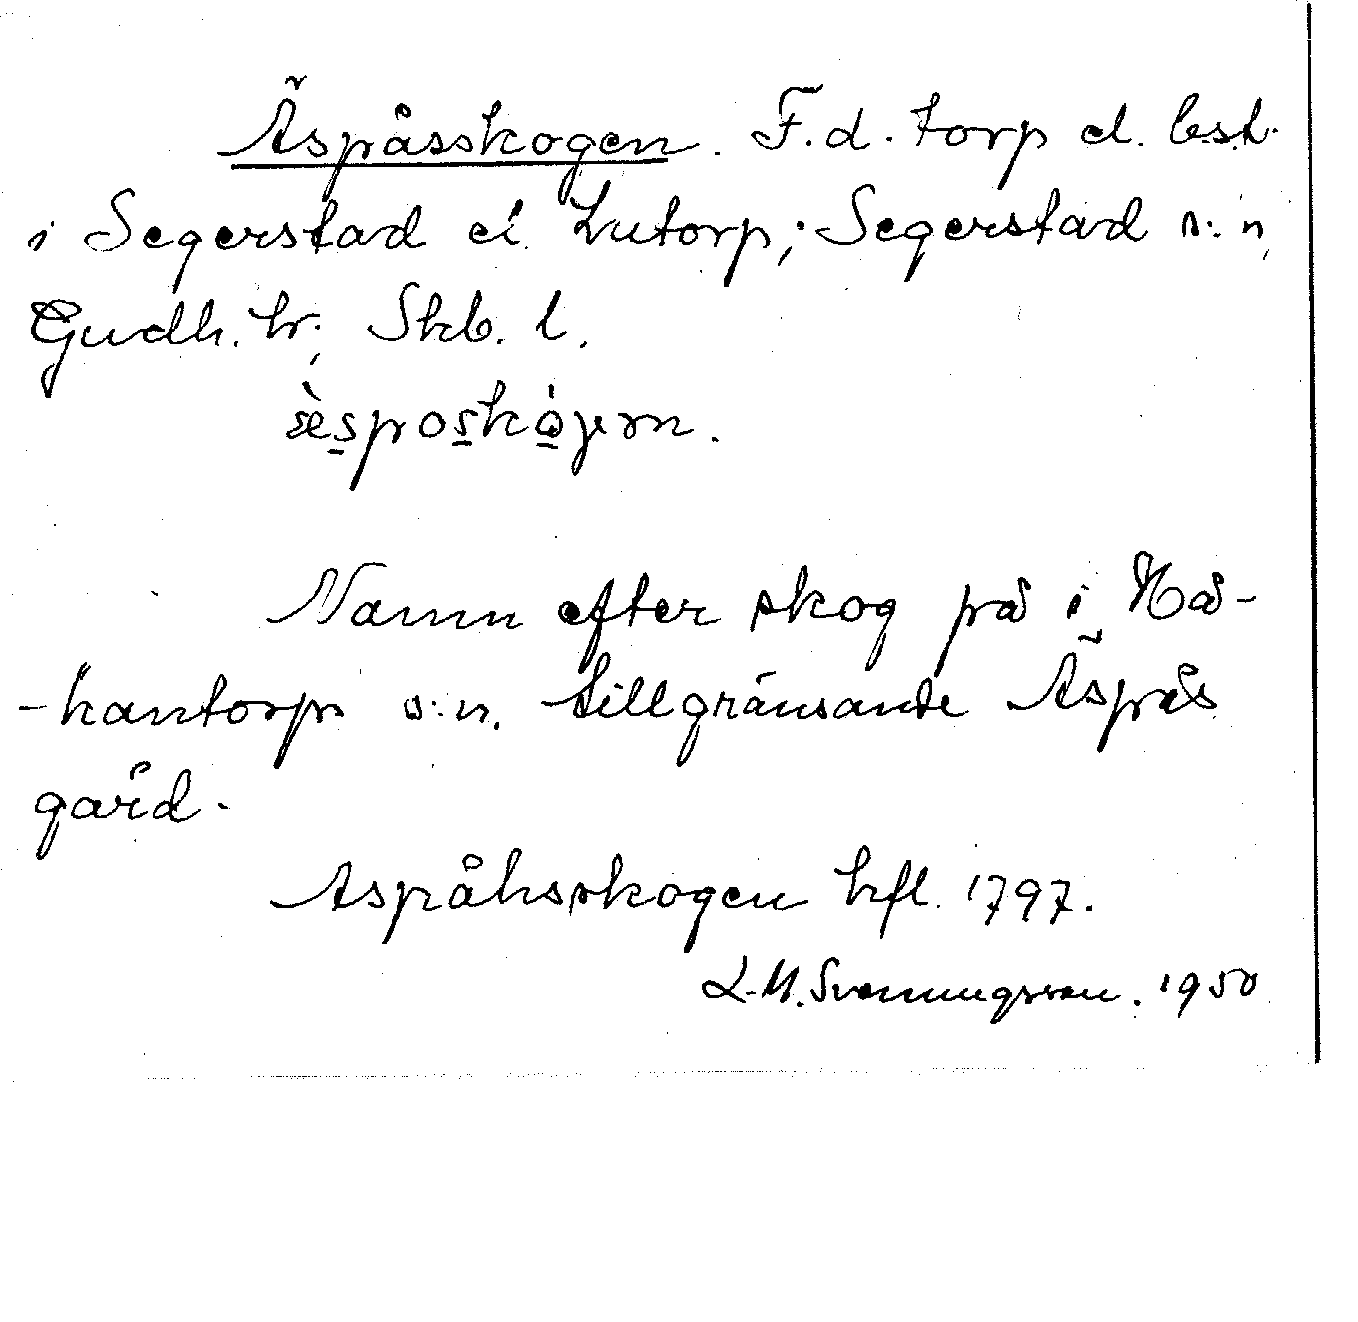 Äspåsskogen. F.d. torp el. bst.
i Segerstad el. Lutorp; Segerstad s:n,
Gudh. hr, Skb. l.
Namn efter skog på i Hå-
-kantorp s:n. tillgränsande Äspås
gård.
Aspåhsskogen hfl. 1797.
L.M. Svenungsson. 1950